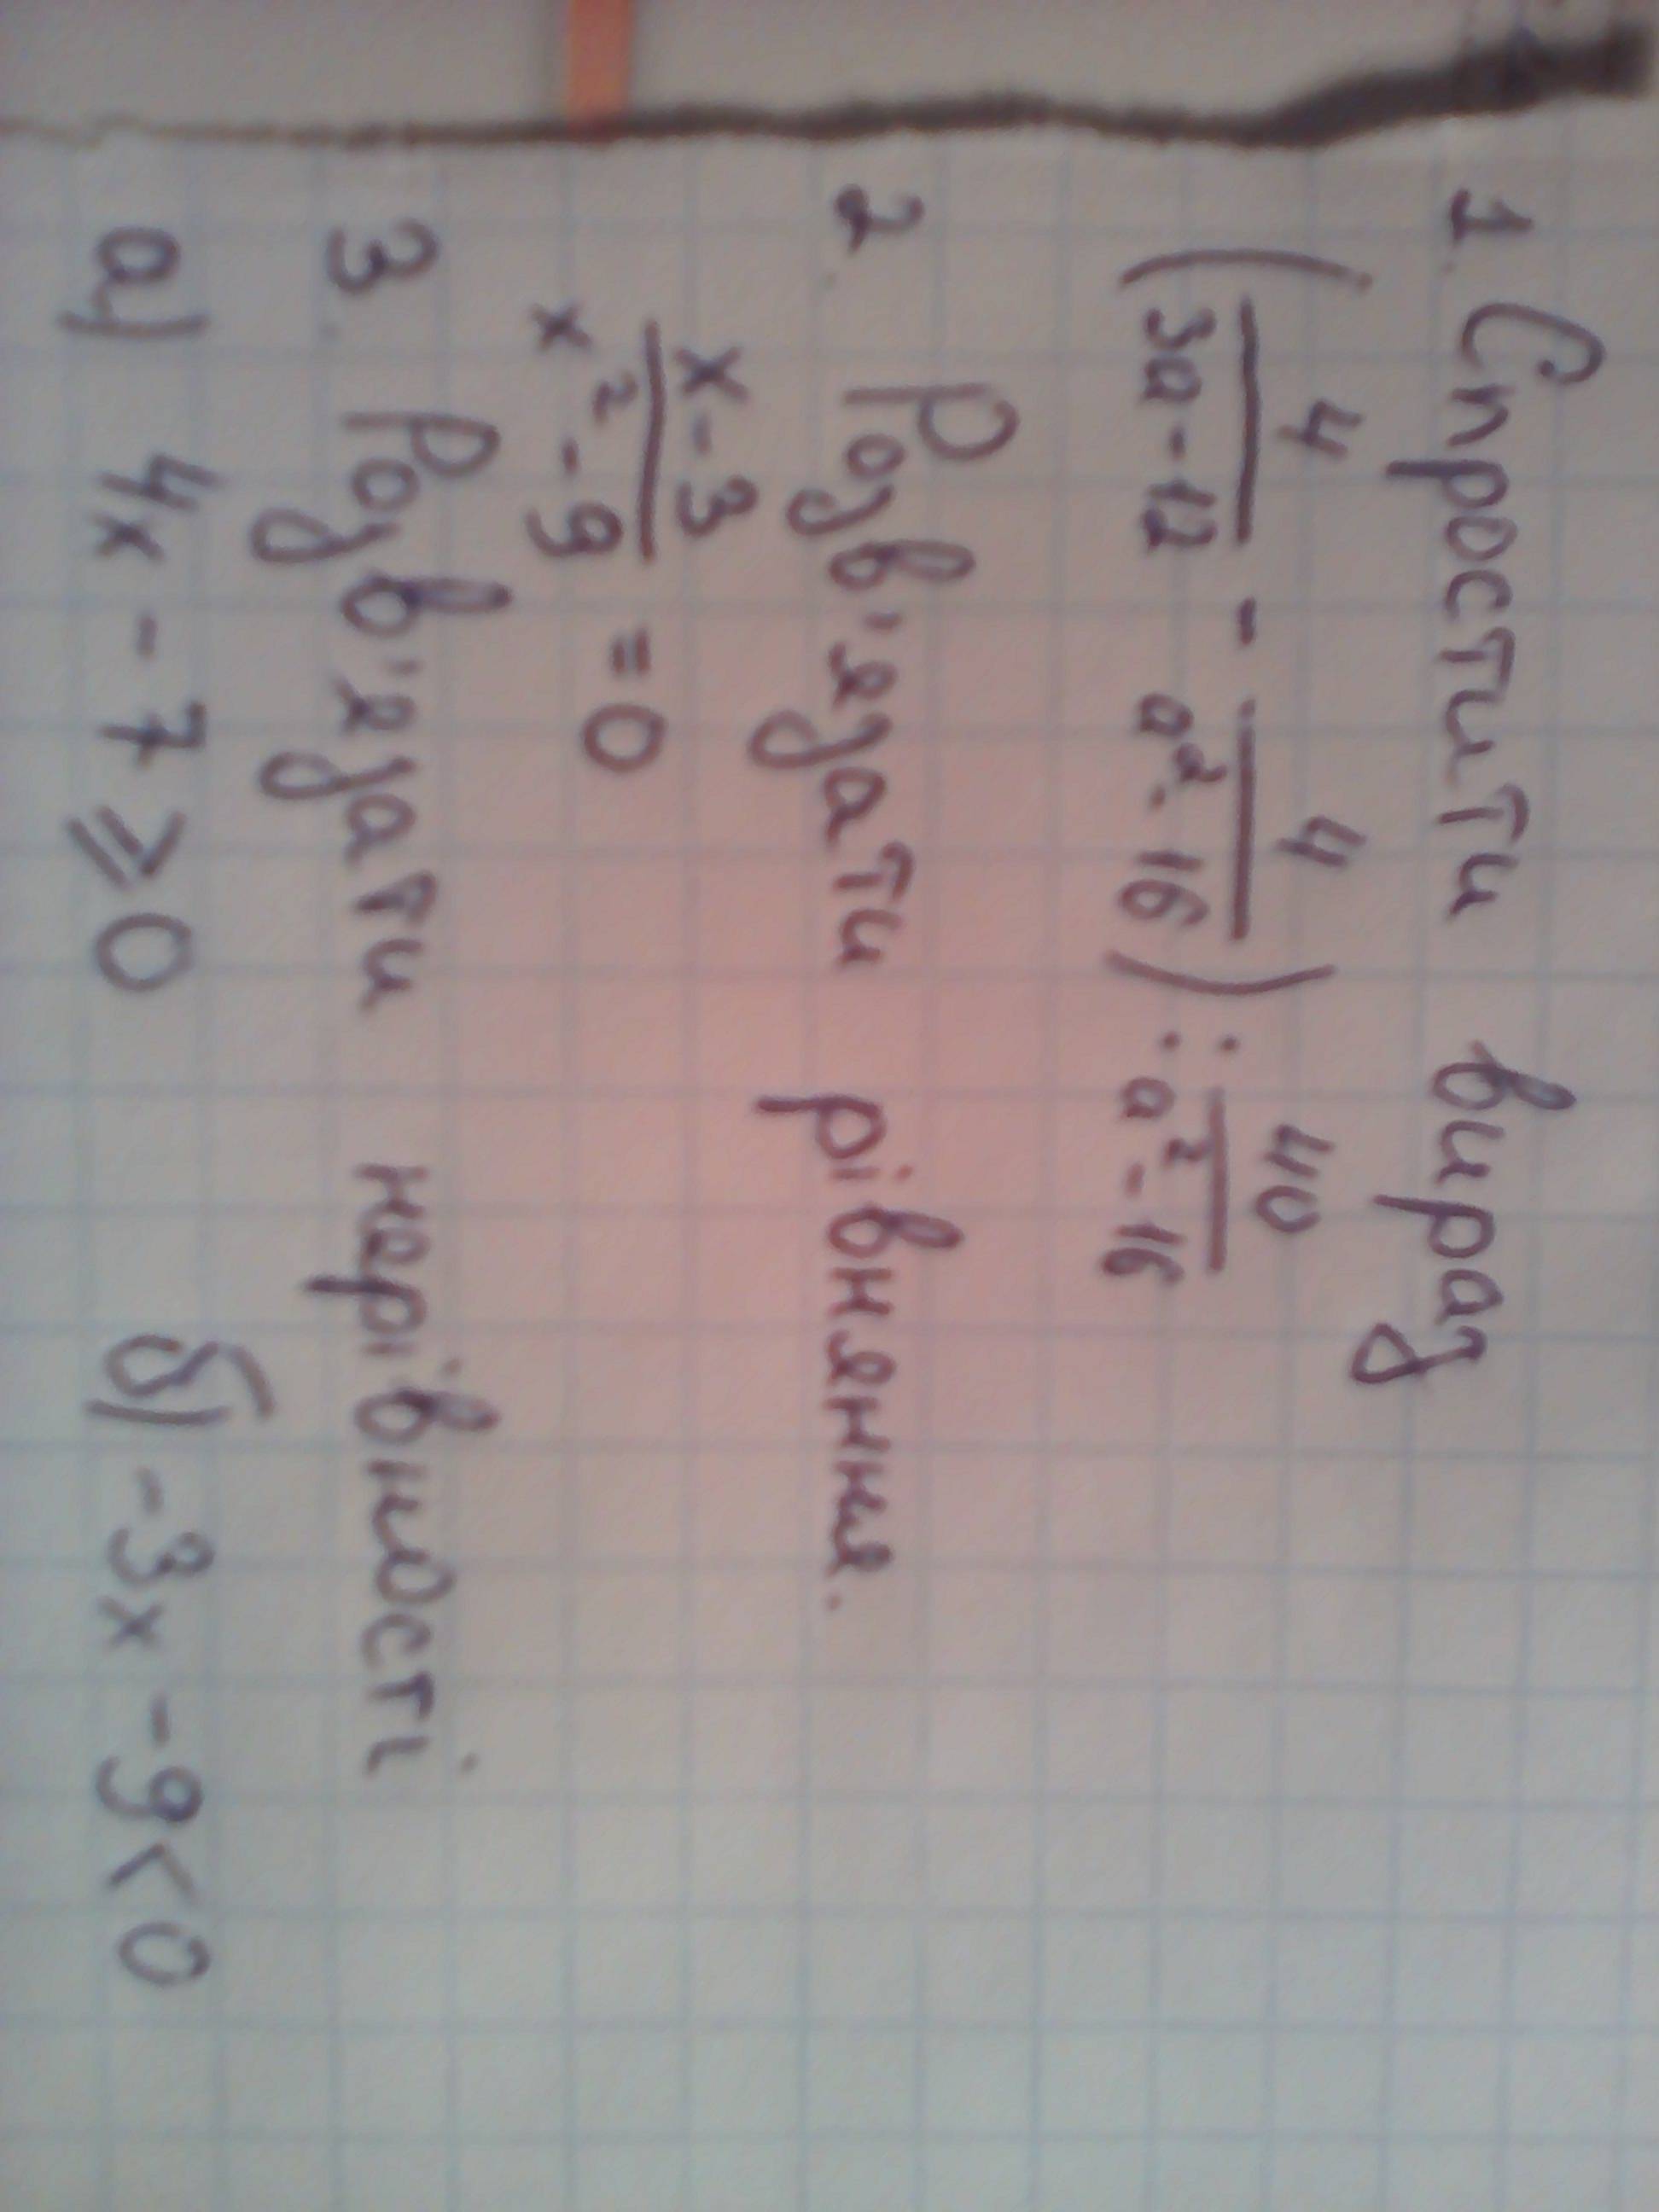 1. Спростити вираз
(4/(3a-12) - 4/(a²-16)) : 40/(a²-16)
2. Розв'язати рівняння.
(x-3)/(x²-9) = 0
3. Розв'язати нерівності
а) 4x - 7 ⩾ 0 б) -3x - 9 < 0